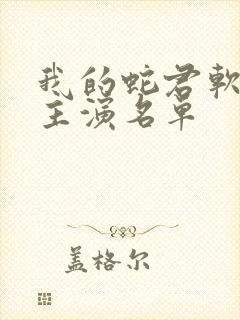 我的蛇君軟
主演名單
盖格尔